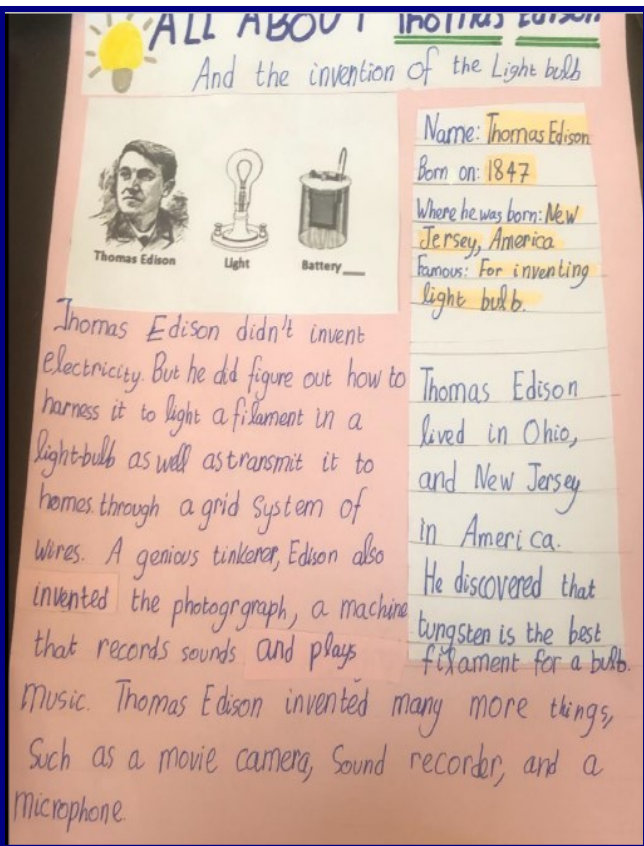 ALL ABOUT Thomas Edison
And the invention of the Light bulb
Thomas Edison
Light
Battery
Name: Thomas Edison
Born on: 1847
Where he was born: New
Jersey, America
Famous: For inventing
light bulb.
Thomas Edison didn't invent
electricity. But he did figure out how to
harness it to light a filament in a
light-bulb as well as transmit it to
homes. through a grid system of
wires. A genious tinkerer, Edison also
invented the photogrgraph, a machine
that records sounds and plays
music. Thomas Edison invented many more things,
Such as a movie camera, Sound recorder, and a
microphone.
Thomas Edison
lived in Ohio,
and New Jersey
in America.
He discovered that
tungsten is the best
filament for a bulb.